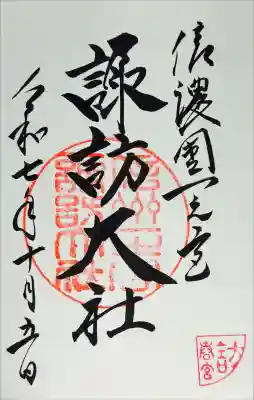 信濃國一之宮
諏訪大社
令和七年十月五日